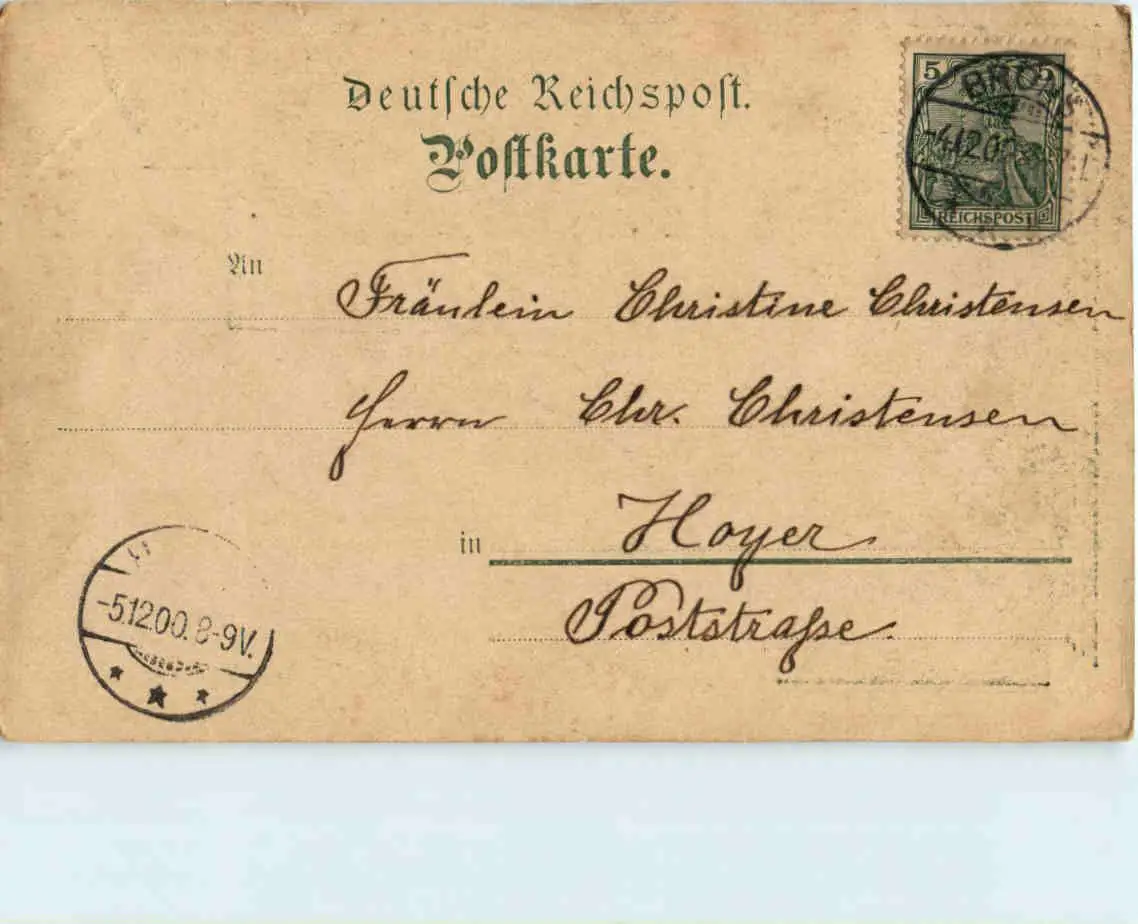 Deutsche Reichspost.
Postkarte.
5 5
BRÖNS
-4.12.00
REICHSPOST
An
Fräulein Christine Christensen
Herrn Chr. Christensen
in Hoyer
Poststraße.
-5.12.00. 8-9V.